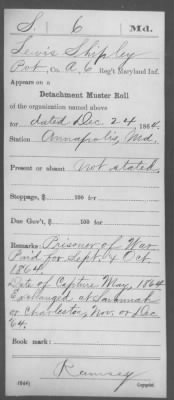 S 6 Md.
Lewis Shipley
Pvt, Co. A, 6 Reg't Maryland Inf.
Appears on a
Detachment Muster Roll
of the organization named above
for dated Dec 24, 1864.
Station Annapolis, Md.
Present or absent Not stated
Stoppage, $ 100 for
Due Gov't, $ 100 for
Remarks: Prisoner of War
Paid for Sept. & Oct
1864
Date of Capture May, 1864
Exchanged at Savannah
or Charleston, Nov. or Dec
64.
Book mark:
Ramsey
Copyist.